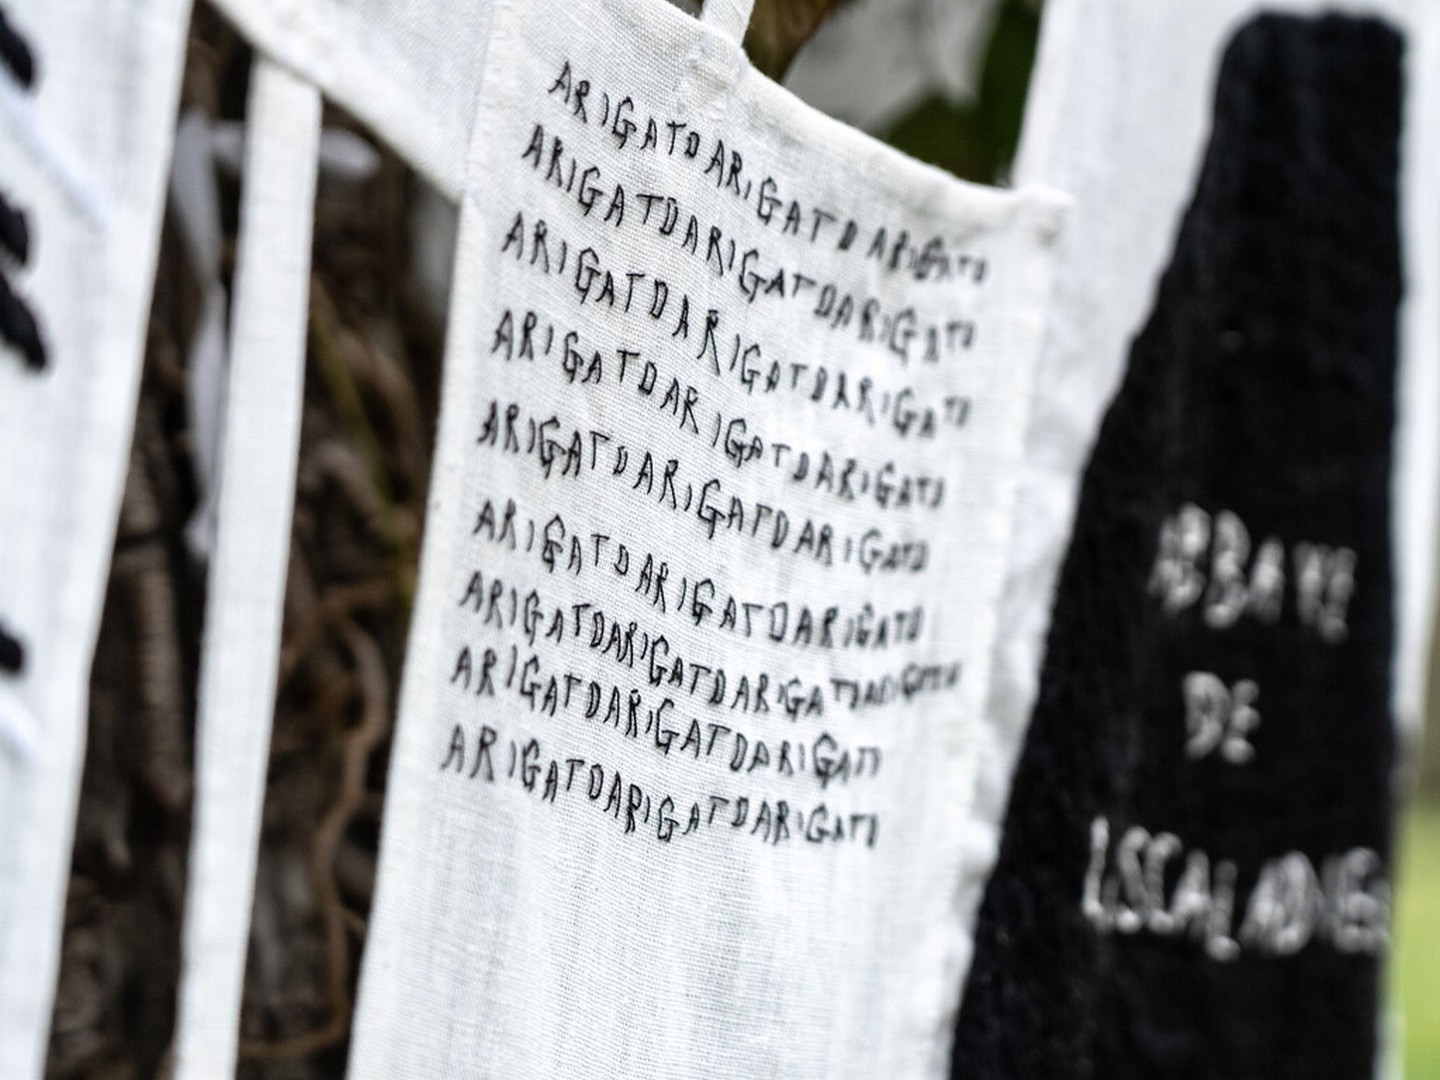 ARIGATOARIGATOARIGATO
ARIGATOARIGATOARIGATO
ARIGATOARIGATOARIGATO
ARIGATOARIGATOARIGATO
ARIGATOARIGATOARIGATO
ARIGATOARIGATOARIGATO
ARIGATOARIGATOARIGATOARIGATO
ARIGATOARIGATOARIGATO
ARIGATOARIGATOARIGATO
ABBAYE
DE
ESCALADIEU